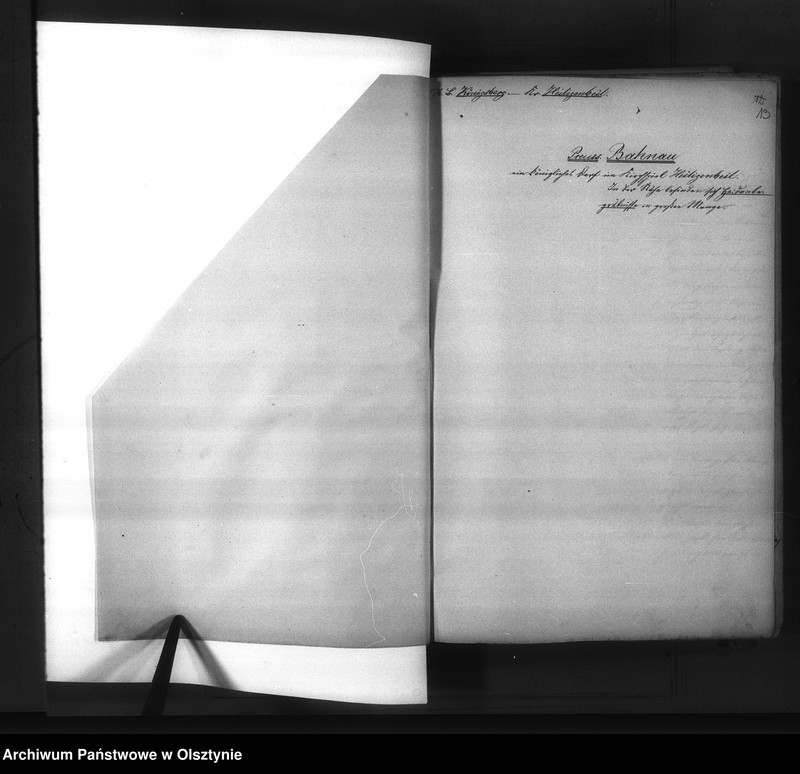 R. B. Königsberg. — Kr. Heiligenbeil.
13
Preuss. Bahnau
ein Königliches Dorf im Kirchspiel Heiligenbeil.
In der Nähe befinden sich Heidenbe-
gräbnisse in großer Menge.
Archiwum Państwowe w Olsztynie